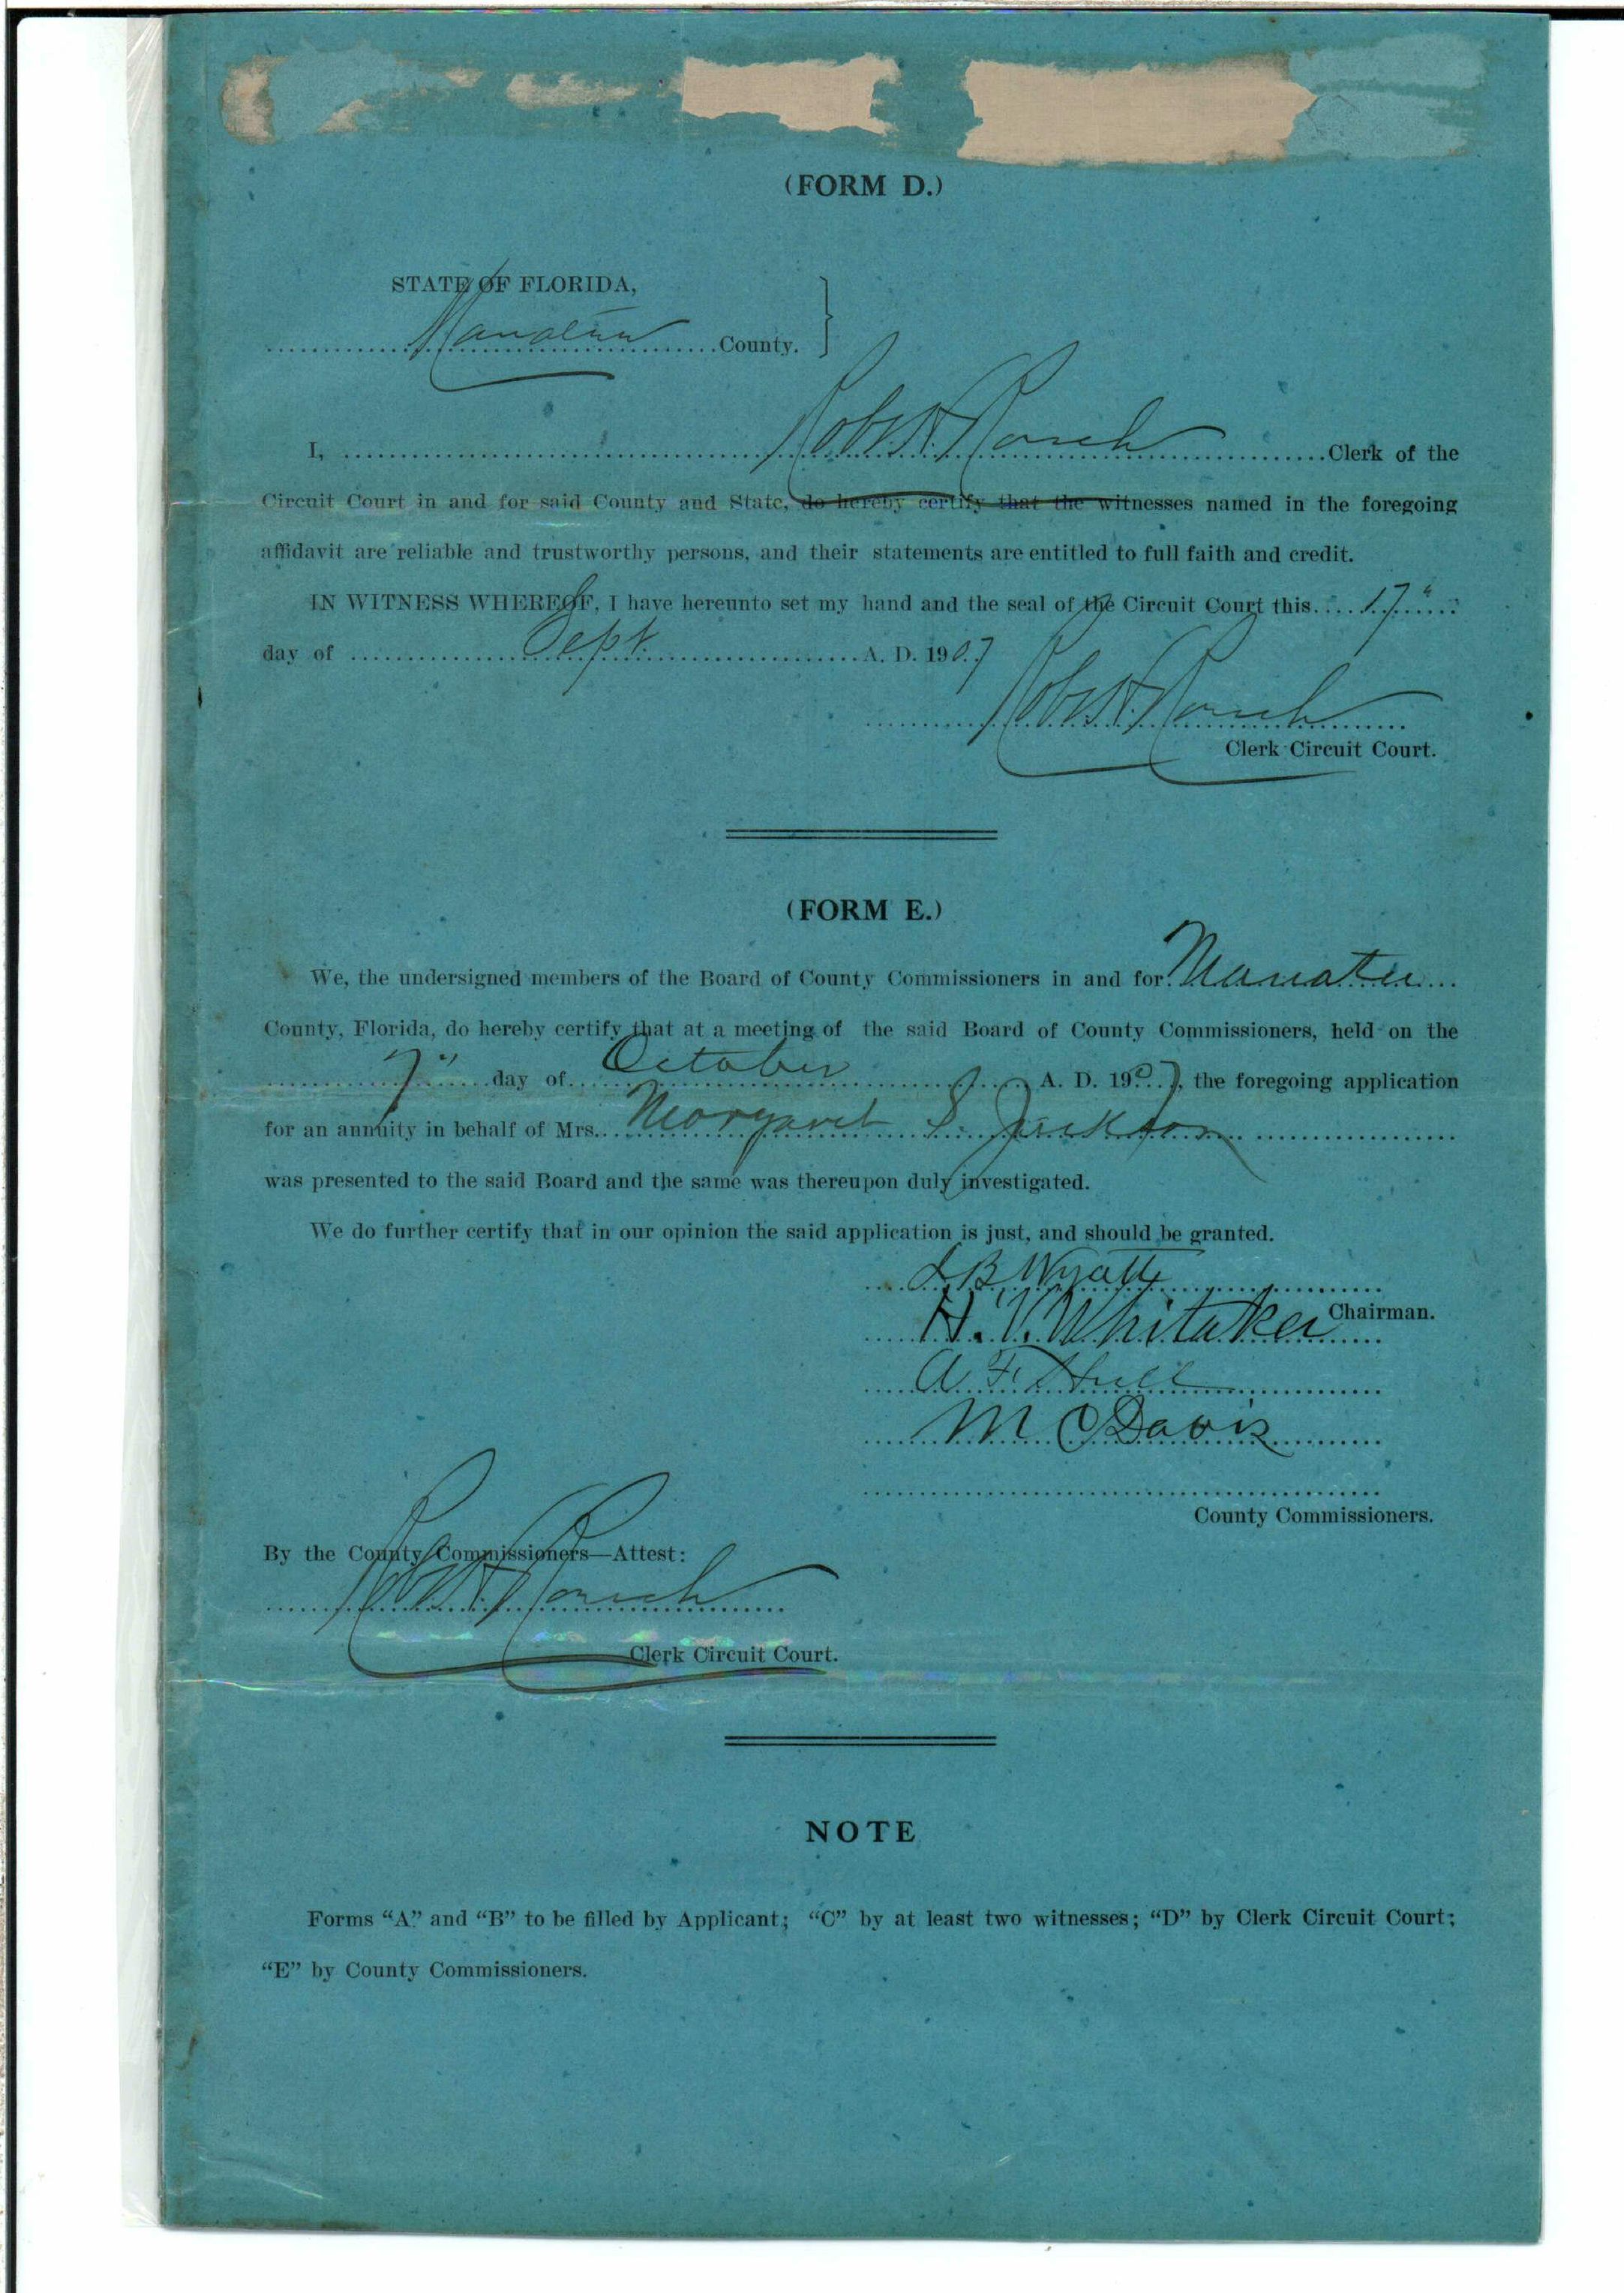 (FORM D.)
STATE OF FLORIDA,
Manatee County.
I, Robt H. Roesch Clerk of the
Circuit Court in and for said County and State, do hereby certify that the witnesses named in the foregoing
affidavit are reliable and trustworthy persons, and their statements are entitled to full faith and credit.
IN WITNESS WHEREOF, I have hereunto set my hand and the seal of the Circuit Court this 17"
day of Sept. A. D. 1907
Robt H. Roesch
Clerk Circuit Court.
(FORM E.)
We, the undersigned members of the Board of County Commissioners in and for Manatee
County, Florida, do hereby certify that at a meeting of the said Board of County Commissioners, held on the
7" day of October A. D. 1907, the foregoing application
for an annuity in behalf of Mrs. Margaret S. Jackson
was presented to the said Board and the same was thereupon duly investigated.
We do further certify that in our opinion the said application is just, and should be granted.
L B Wyatt
Chairman.
H. V. Whitaker
A F Hull
M C Davis
County Commissioners.
By the County Commissioners—Attest:
Robt H. Roesch
Clerk Circuit Court.
NOTE
Forms “A” and “B” to be filled by Applicant; “C” by at least two witnesses; “D” by Clerk Circuit Court;
“E” by County Commissioners.